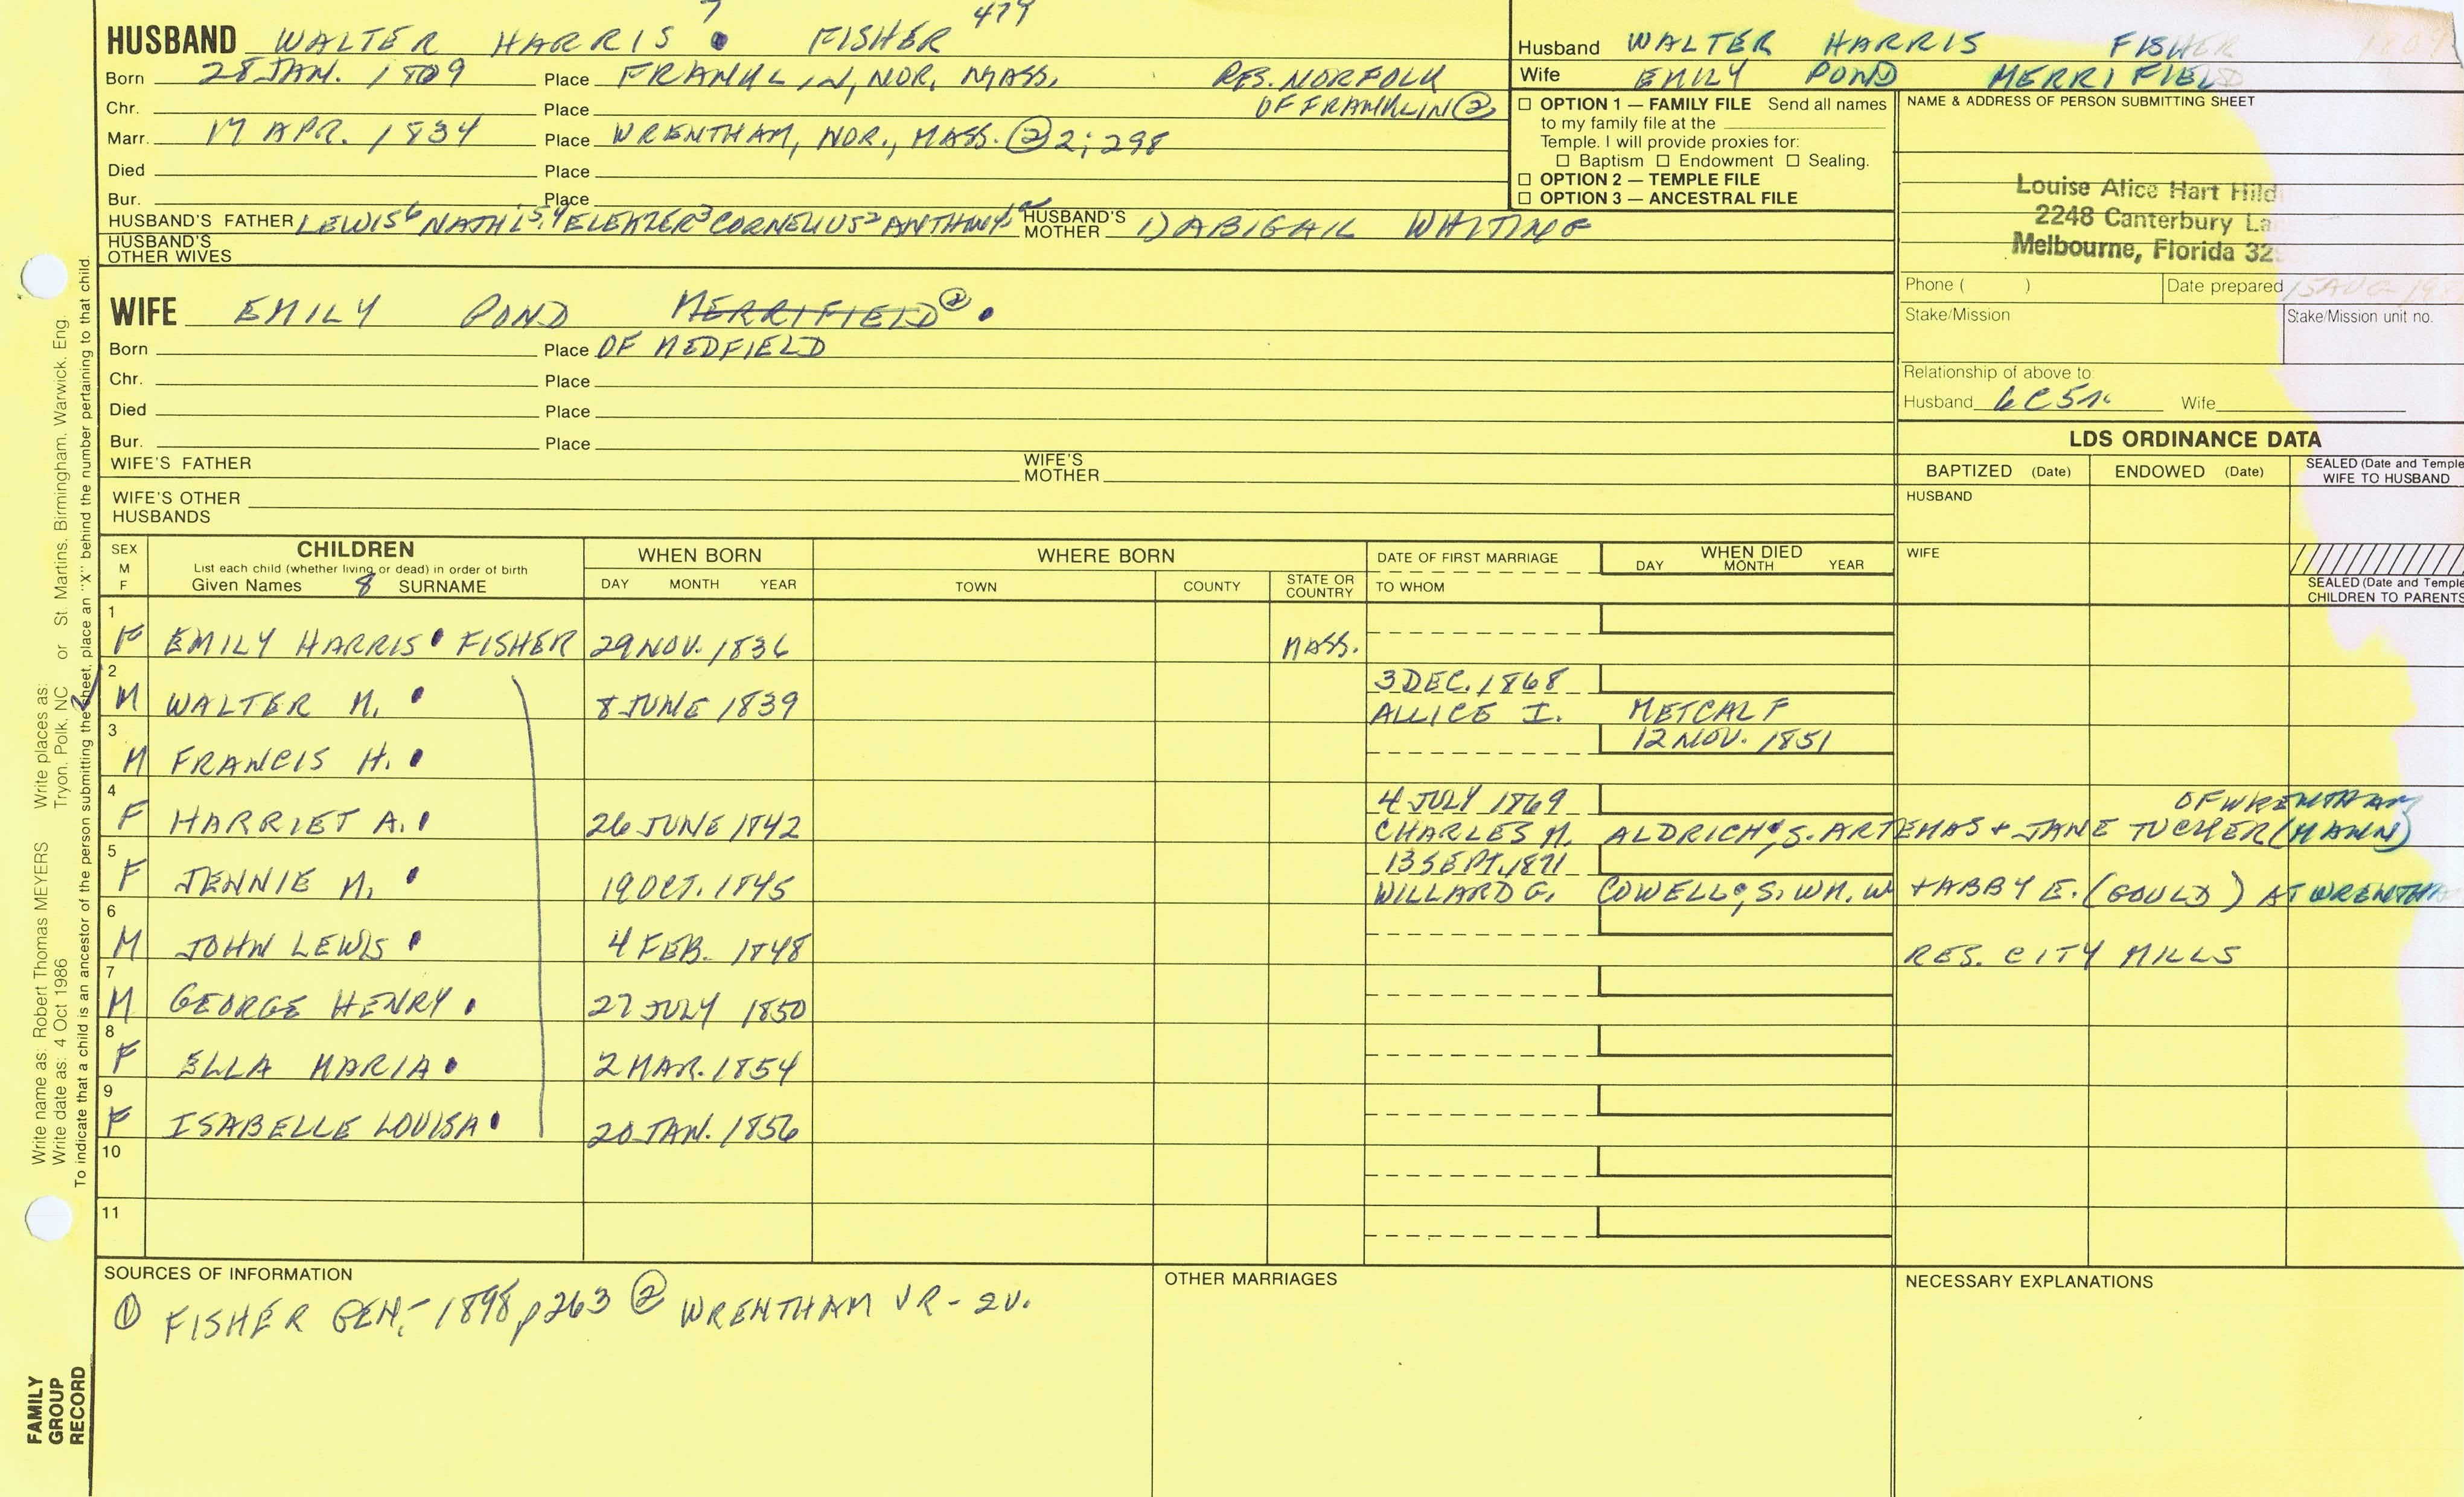 7 479
HUSBAND WALTER HARRIS FISHER
Born 28 JAN. 1809 Place FRANKLIN, NOR, MASS. RES. NORFOLK
Chr. Place OF FRANKLIN ②
Marr. 17 APR. 1834 Place WRENTHAM, NOR., MASS. ② 2; 298
Died Place
Bur. Place
HUSBAND'S FATHER LEWIS⁶ NATH'L⁵,⁴ ELEAZER³ CORNELIUS² ANTHONY¹ HUSBAND'S MOTHER 1) ABIGAIL WHITING
HUSBAND'S OTHER WIVES
Husband WALTER HARRIS FISHER
Wife EMILY POND MERRIFIELD
☐ OPTION 1 — FAMILY FILE Send all names
to my family file at the
Temple. I will provide proxies for:
☐ Baptism ☐ Endowment ☐ Sealing.
☐ OPTION 2 — TEMPLE FILE
☐ OPTION 3 — ANCESTRAL FILE
NAME & ADDRESS OF PERSON SUBMITTING SHEET
Louise Alice Hart Hild
2248 Canterbury La
Melbourne, Florida 32
Phone ( ) Date prepared 15 AUG 19
Stake/Mission Stake/Mission unit no.
Relationship of above to:
Husband Wife
WIFE EMILY POND MERRIFIELD ②
Born Place OF MEDFIELD
Chr. Place
Died Place
Bur. Place
WIFE'S FATHER WIFE'S MOTHER
WIFE'S OTHER HUSBANDS
LDS ORDINANCE DATA
BAPTIZED (Date) ENDOWED (Date) SEALED (Date and Temple) WIFE TO HUSBAND
HUSBAND
WIFE
SEALED (Date and Temple) CHILDREN TO PARENTS
SEX M F CHILDREN WHEN BORN WHERE BORN DATE OF FIRST MARRIAGE WHEN DIED
List each child (whether living or dead) in order of birth
Given Names 8 SURNAME DAY MONTH YEAR TOWN COUNTY STATE OR COUNTRY TO WHOM DAY MONTH YEAR
1 F EMILY HARRIS FISHER 29 NOV. 1836 MASS.
2 M WALTER M. 8 JUNE 1839 3 DEC. 1868
ALLICE I. METCALF
3 M FRANCIS H. 12 NOV. 1851
4 F HARRIET A. 26 JUNE 1842 4 JULY 1869 OF WRENTHAM
CHARLES M. ALDRICH, S. ARTEMAS + JANE TUCKER (MANN)
5 F JENNIE M. 19 OCT. 1845 13 SEPT. 1871
WILLARD G. COWELL, S. WM. W + ABBY E. (GOULD) AT WRENTHA
6 M JOHN LEWIS 4 FEB. 1848 RES. CITY MILLS
7 M GEORGE HENRY 27 JULY 1850
8 F ELLA MARIA 2 MAR. 1854
9 F ISABELLE LOUISA 20 JAN. 1856
10
11
SOURCES OF INFORMATION
① FISHER GEN.- 1898 p263 ② WRENTHAM VR - 2V.
OTHER MARRIAGES
NECESSARY EXPLANATIONS
Write name as: Robert Thomas MEYERS Write places as:
Write date as: 4 Oct 1986 Tryon, Polk, NC or St. Martins, Birmingham, Warwick, Eng.
To indicate that a child is an ancestor of the person submitting the sheet, place an "X" behind the number pertaining to that child.
FAMILY
GROUP
RECORD